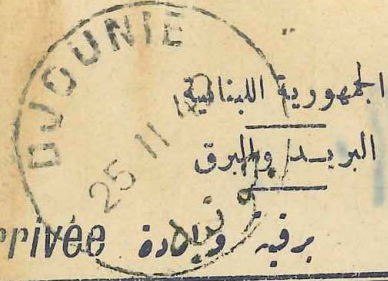 DJOUNIE
الجمهورية اللبنانية
25 11
البريد والبرق
rrivée برقية